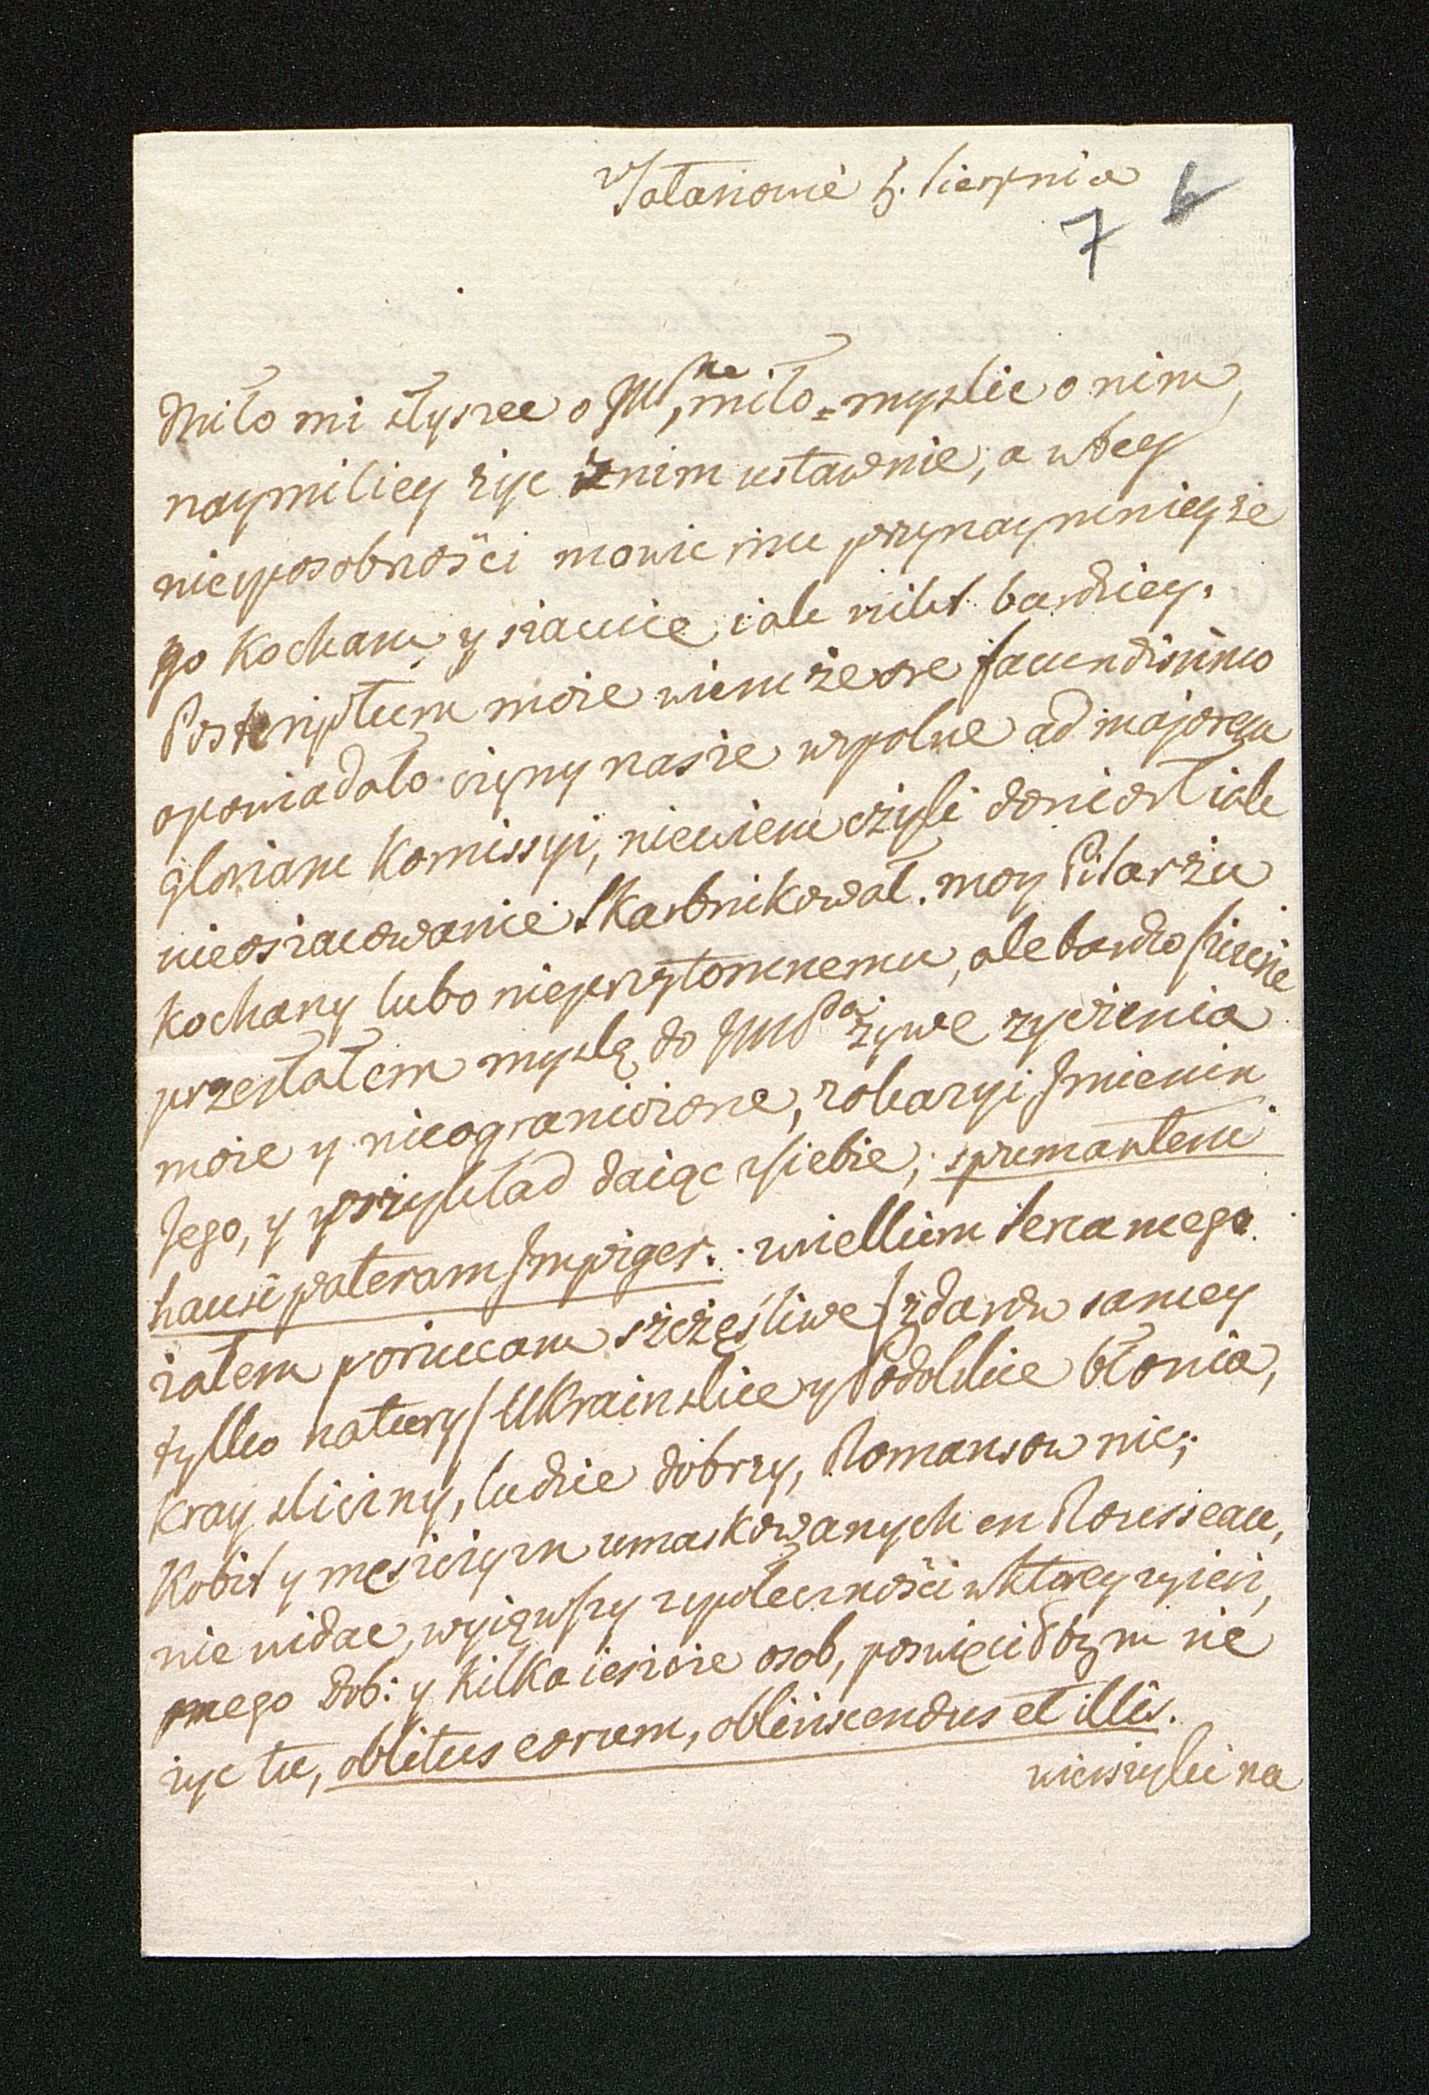 w Satanowie 5. Sierpnia
7 6
Miło mi słyszec o JMP, miło myslic o nim,
naymiliey życ z nim ustawnie, a w tey
niesposobności mowic mu przynaymniey że
go kocham y szacuię iak nikt bardziey.
Postscriptum moie wiem że ore facundissimo
opowiadało czyny nasze wspolne ad majorem
gloriam Komissyi, niewiem czyli doniosł iak
nieoszacowanie Skarbnikował. moy Pisarzu
kochany lubo nieprzytomnemu, ale bardzo szczerze
przesłałem myslą do JMP żywe życzenia
moie y nieograniczone, z okazyi Jmienin
Jego, y przykład daiąc z siebie, spumantem
hausi pateram Impiger. wielkim serca mego
żalem porzucam szczęśliwe /z darow samey
tylko natury/ Ukrainskie y Podolskie błonia,
kray sliczny, ludzie dobrzy, Romansow nic;
Kobit y męszczyzn umaskowanych en Rousseau,
nie widac, wyiąwszy społecznośći w ktorey żyiesz,
mego Dob: y kilka ieszcze osob, poswięciłbym się
życ tu, oblitus eorum, obliviscendus et illis.
wierszyki na